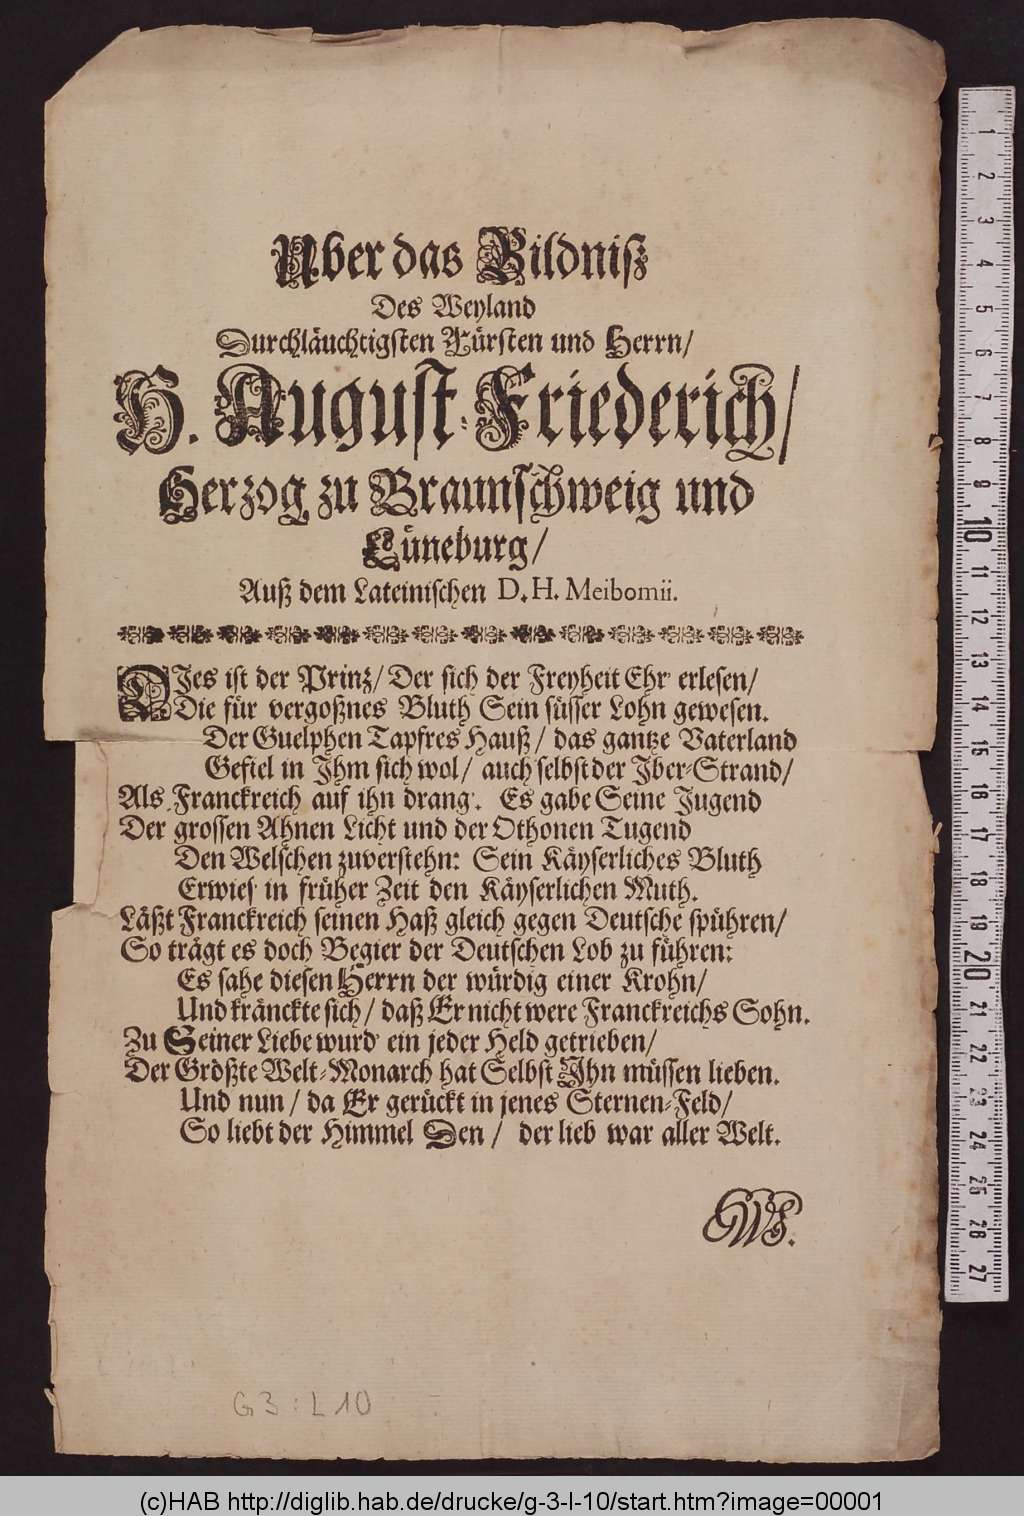 Uber das Bildniß
Des Weyland
Durchläuchtigsten Fürsten und Herrn/
H. August-Friederich/
Herzog zu Braunschweig und
Lüneburg/
Auß dem Lateinischen D. H. Meibomii.
DIes ist der Prinz/ Der sich der Freyheit Ehr' erlesen/
Die für vergoßnes Bluth Sein süsser Lohn gewesen.
Der Guelphen Tapfres Hauß/ das gantze Vaterland
Gefiel in Ihm sich wol/ auch selbst der Iber-Strand/
Als Franckreich auf ihn drang'. Es gabe Seine Jugend
Der grossen Ahnen Licht und der Othonen Tugend
Den Welschen zuverstehn: Sein Käyserliches Bluth
Erwies' in früher Zeit den Käyserlichen Muth.
Läßt Franckreich seinen Haß gleich gegen Deutsche spühren/
So trägt es doch Begier der Deutschen Lob zu führen:
Es sahe diesen Herrn der würdig einer Krohn/
Und kränckte sich/ daß Er nicht were Franckreichs Sohn.
Zu Seiner Liebe wurd' ein jeder Held getrieben/
Der Größte Welt-Monarch hat Selbst Ihn müssen lieben.
Und nun/ da Er gerückt in jenes Sternen-Feld/
So liebt der Himmel Den/ der lieb war aller Welt.
G 3 : L 10
1
2
3
4
5
6
7
8
9
10
11
12
13
14
15
16
17
18
19
20
21
22
23
24
25
26
27
(c)HAB http://diglib.hab.de/drucke/g-3-l-10/start.htm?image=00001